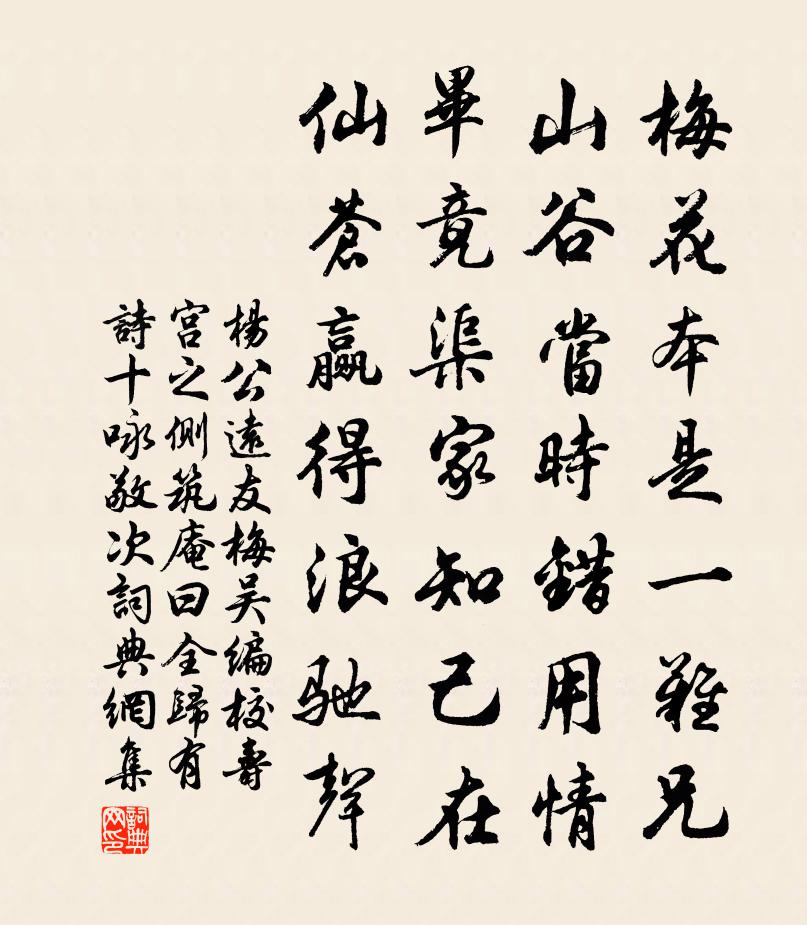 梅花本是一難兄
山谷當時錯用情
畢竟渠家知己在
仙蒼贏得浪馳聲
楊公遠友梅吴編校壽
宮之側筑庵曰全歸有
詩十咏敬次詞典網集
詞典网印